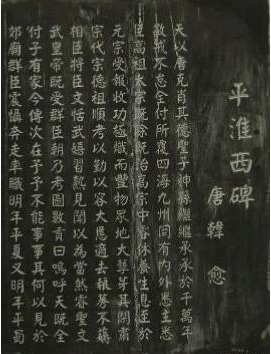 平淮西碑
唐韓愈
天以唐克肖其德聖子神孫繼繼承承於千萬年
敬戒不怠全付所覆四海九州罔有內外悉主悉
臣高祖太宗既除既治高宗中睿休養生息至於
元宗受報收功極熾而豐物眾地大孽牙其間肅
宗代宗德祖順考以勤以容大慝適去稂莠不薅
相臣將臣文恬武嬉習熟見聞以為當然睿聖文
武皇帝既受群臣朝乃考圖數貢曰嗚呼天既全
付予有家今傳次在予予不能事事其何以見於
郊廟群臣震懾奔走率職明年平夏又明年平蜀